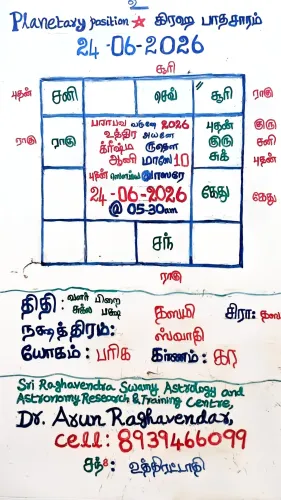 உ
Planetary position ★ கிரஹ பாதசாரம்
24-06-2026
சூரி
புதன் சனி செவ் " சூரி ராகு
ராகு ராகு புதன் குரு சுக் குரு சனி புதன்
பராபவ வருஷ 2026
உத்திர அயனே
க்ரீஷ்ம ருதௌ
ஆனி மாஸே 10
புதன் ஸௌம்ய வாஸரே
24-06-2026
@ 05-30am
கேது கேது
சந்
ராகு
திதி: வளர் பிறை சுக்ல பக்ஷ தஸமி
நக்ஷத்திரம்: ஸ்வாதி
யோகம்: பரிக கரணம்: கர
Sri Raghavendra Swamy Astrology and
Astronomy Research & Training Centre,
Dr. Arun Raghavendar,
cell: 8939466099
உத்திரட்டாதி